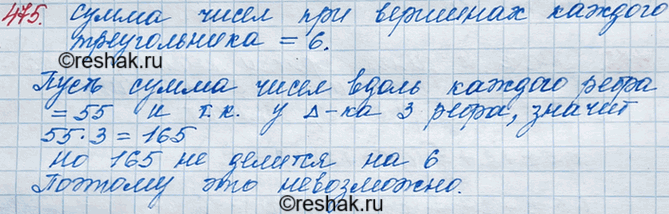 475. Сумма чисел при вершинах каждого
треугольника = 6.
©reshak.ru
Пусть сумма чисел вдоль каждого ребра
= 55 и т.к. у Δ-ка 3 ребра, значит
55·3 = 165
Но 165 не делится на 6
Поэтому это невозможно.
©reshak.ru